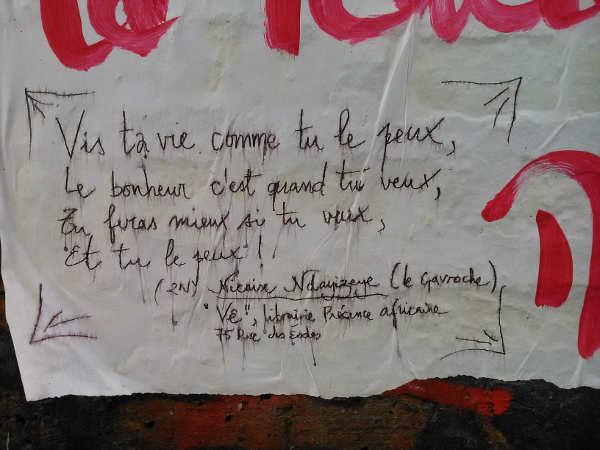 Vis ta vie comme tu le peux,
Le bonheur c'est quand tu veux,
Tu feras mieux si tu veux,
Et tu le peux !
(2N) Nicaise Ndayizeye (le Gavroche)
"V.E", librairie Présence africaine
75 Rue des Ecoles